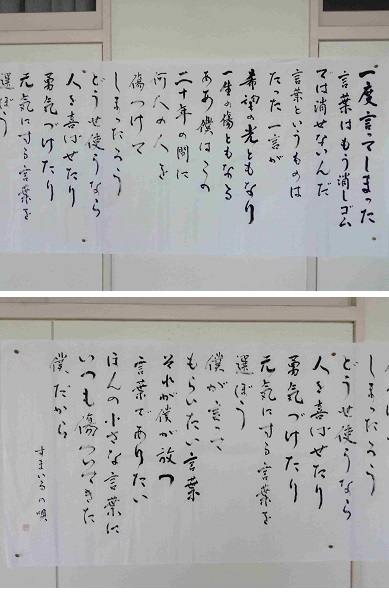 一度言てしまった
言葉はもう消しゴム
では消せないんだ
言葉というものは
たった一言が
希望の光ともなり
一生の傷ともなる
ああ僕はこの
二十年の間に
何人の人を
傷つけて
しまったろう
どうせ使うなら
人を喜ばせたり
勇気づけたり
元気にする言葉を
選ぼう
しまったろう
どうせ使うなら
人を喜ばせたり
勇気づけたり
元気にする言葉を
選ぼう
僕が言って
もらいたい言葉
それが僕が放つ
言葉でありたい
ほんの小さな言葉に
いつも傷ついてきた
僕だから
すまいるの唄